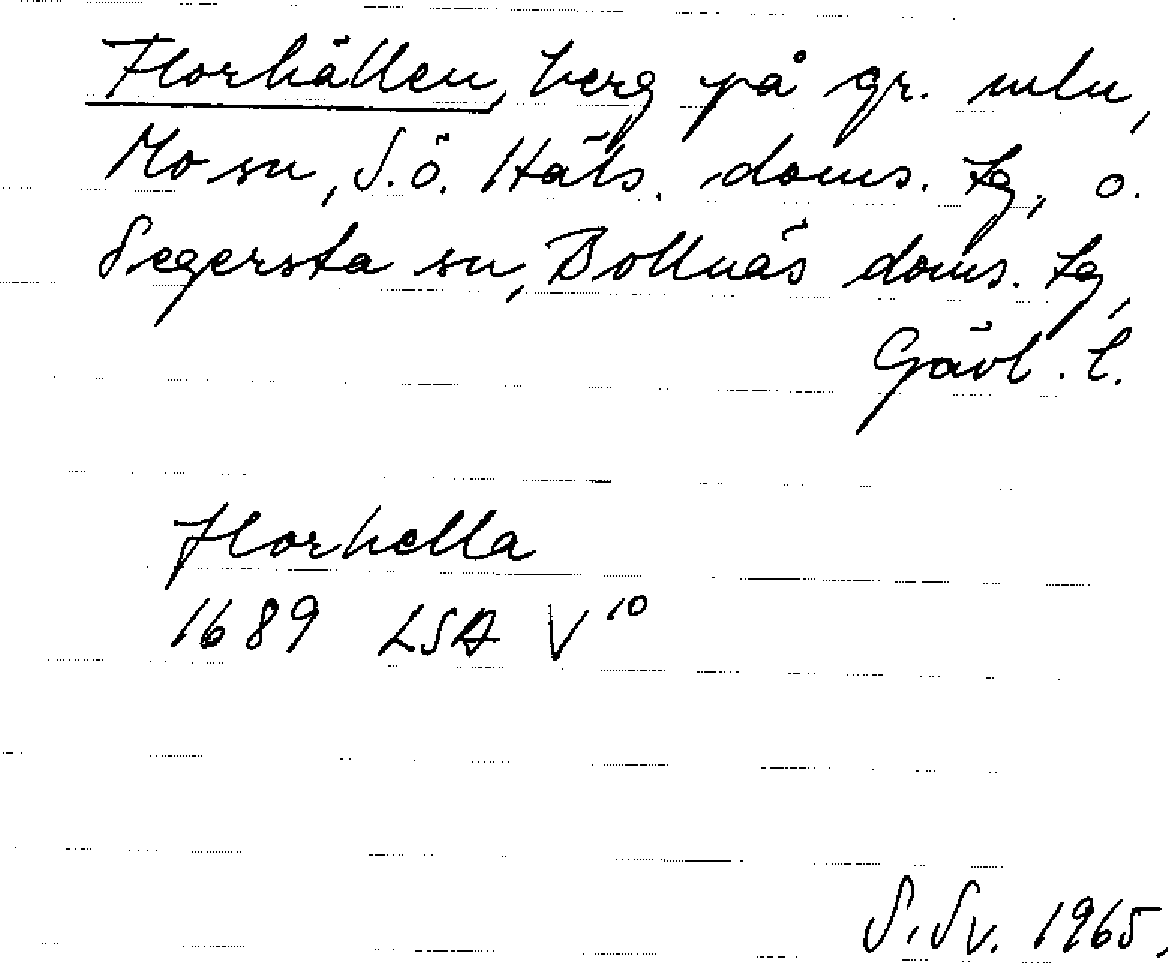 Florhällen, berg på gr. mln,
Mo sn, S.ö. Häls. doms. tg, o.
Segersta sn, Bollnäs doms. tg,
Gävl. l.
Florhella
1689 LSA V¹⁰
S. Sv. 1965,